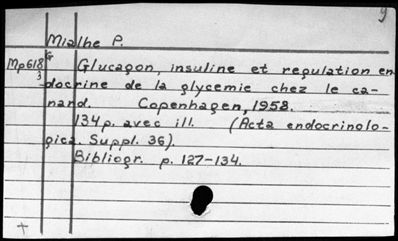 g
Mialhe P.
Mp618 G Glucagon, insuline et regulation en
3 docrine de la glycemie chez le ca-
nard. Copenhagen, 1958.
134p. avec ill. (Acta endocrinolo-
gica. Suppl. 36).
Bibliogr. p. 127-134.